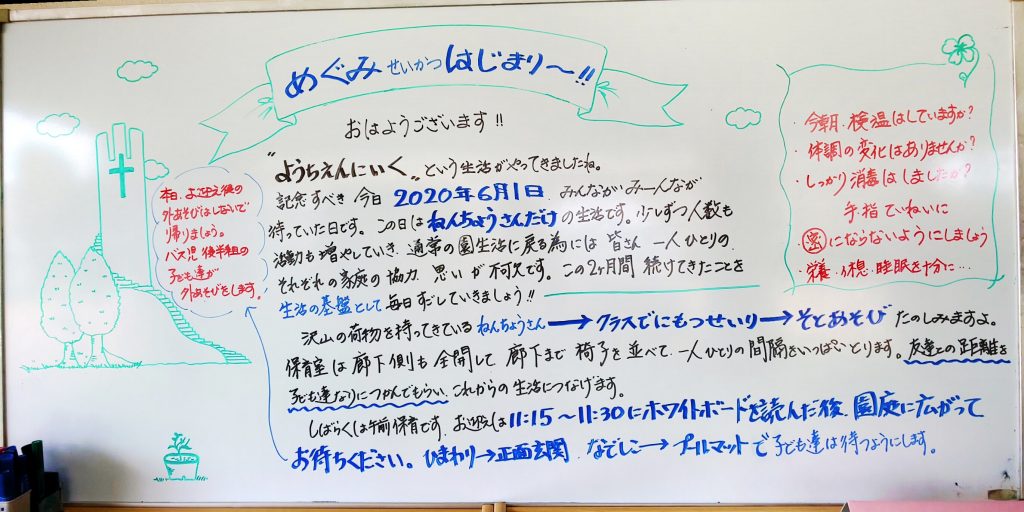 めぐみ せいかつ はじまり〜!!
おはようございます!!
"ようちえんにいく" という生活がやってきましたね。
記念すべき 今日 2020年6月1日 みんながみーんなが
待っていた日です。この日は ねんちょうさんだけ の生活です。少しずつ人数も
活動も増やしていき、通常の園生活に戻る為には 皆さん 一人ひとりの
それぞれの家庭の協力、思いが 不可欠です。この2ヶ月間 続けてきたことを
生活の基盤として毎日すごしていきましょう!!
沢山の荷物を持ってきている ねんちょうさん → クラスでにもつせいり → そとあそび たのしみますよ。
保育室は 廊下側も 全開して 廊下まで 椅子を並べて、一人ひとりの間隔をいっぱいとります。友達との距離を
子ども達なりにつかんでもらい、これからの生活につなげます。
しばらくは午前保育です。お迎えは 11:15〜11:30にホワイトボードを読んだ後、園庭に広がって
お待ちください。ひまわり→正面玄関、なでしこ→プールマットで子ども達は待つようにします。
本日、お迎え後の
外あそびはしないで
帰りましょう。
バス児 後半組の
子ども達が
外あそびをします。
・今朝、検温はしていますか?
・体調の変化はありませんか?
・しっかり消毒はしましたか?
手・指 ていねいに
・密にならないようにしましょう
・栄養・休息・睡眠を十分に…